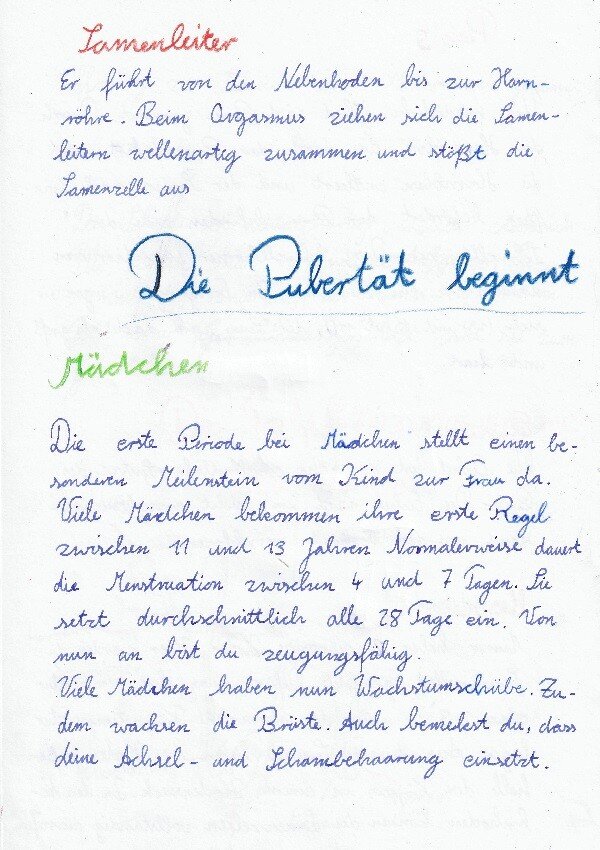 Samenleiter
Er führt von den Nebenhoden bis zur Harn-
röhre. Beim Orgasmus ziehen sich die Samen-
leitern wellenartig zusammen und stößt die
Samenzelle aus
Die Pubertät beginnt
Mädchen
Die erste Periode bei Mädchen stellt einen be-
sonderen Meilenstein vom Kind zur Frau da.
Viele Mädchen bekommen ihre erste Regel
zwischen 11 und 13 Jahren Normalerweise dauert
die Menstruation zwischen 4 und 7 Tagen. Sie
setzt durchschnittlich alle 28 Tage ein. Von
nun an bist du zeugungsfähig.
Viele Mädchen haben nun Wachstumschübe. Zu-
dem wachsen die Brüste. Auch bemerkst du, dass
deine Achsel- und Schambehaarung einsetzt.